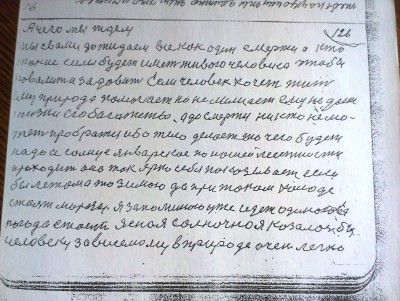 126
А чего мы ждем
мы с вами дожидаем все как один смерть а кто
такие силы будет имет живого человека чтобы
повалит и задовит Если человек хочет жит
ему природа помогает но не мешает ему не дает
жизни его богатство. а до смерти никто не мо-
жет пробратся ибо тело делает то чего будет
надо а солнце январское по нашей местности
проходит она так ярко себя показывает если
бы летом а то зимою да при таком холоде
стоят морозы. Я запоминаю уже идет одинатый
погода стоит ясная солнечная козалось бы
человеку зависимому в природе очен легко